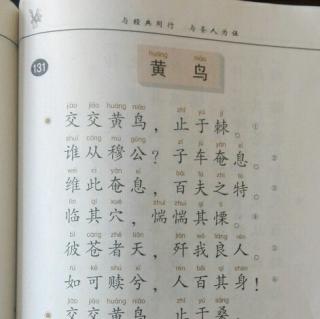 与经典同行 与圣人为伍
131
huáng niǎo
黄鸟
jiāo jiāo huáng niǎo zhǐ yú jí
交交黄鸟，止于棘。①
shuí cóng mù gōng zǐ jū yǎn xī
谁从穆公？子车奄息。②
wéi cǐ yǎn xī bǎi fū zhī tè
维此奄息，百夫之特。③
lín qí xué zhuì zhuì qí lì
临其穴，惴惴其慄。④
bǐ cāng zhě tiān jiān wǒ liáng rén
彼苍者天，歼我良人。
rú kě shú xī rén bǎi qí shēn
如可赎兮，人百其身！
交交黄鸟，止于桑。